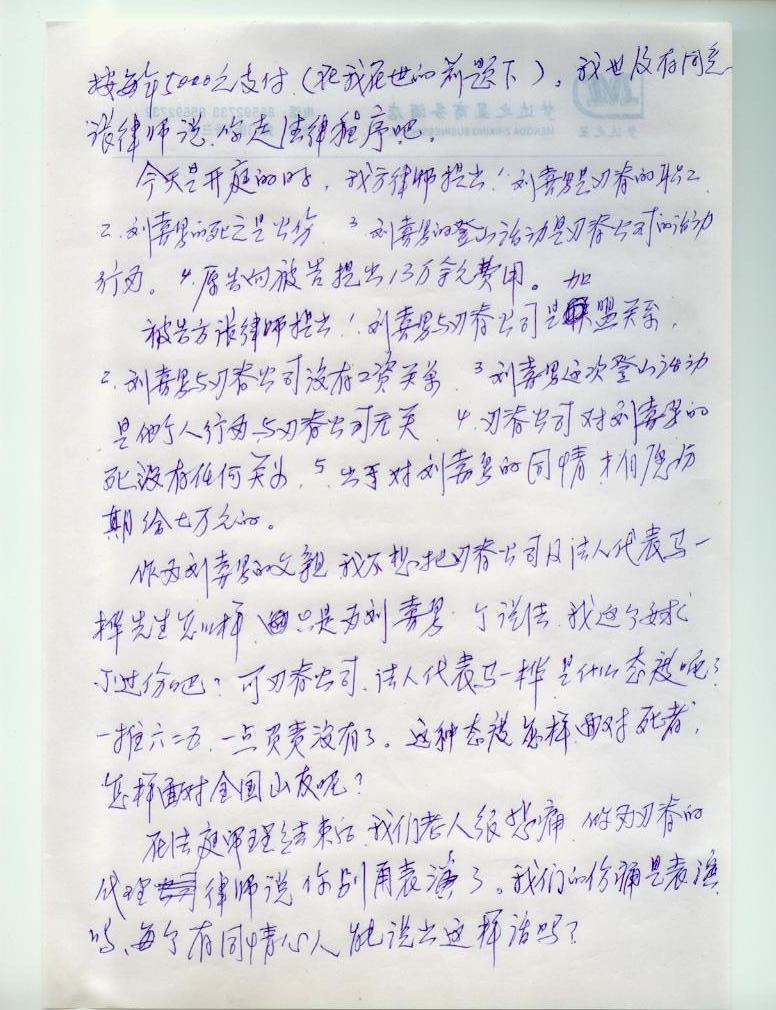 按每年5000元支付（在我在世的前题下），我也没有同意
该律师说，你走法律程序吧。
今天是开庭的日子，我方律师提出1.刘喜男是刃脊的职工
2.刘喜男的死亡是公伤 3 刘喜男的登山活动是刃脊公司的活动
行为。4.原告向被告提出13万余元费用。
被告方该律师提出1.刘喜男与刃脊公司是加盟关系，
2.刘喜男与刃脊公司没有工资关系 3 刘喜男这次登山活动
是他个人行为与刃脊公司无关 4.刃脊公司对刘喜男的
死没有任何关系，5.出于对刘喜男的同情才自愿分
期给七万元的。
作为刘喜男的父亲 我不想把刃脊公司及法人代表马一
桦先生怎么样，只是为刘喜男 个说法 我这个要求
不过份吧？可刃脊公司，法人代表马一桦是什么态度呢？
一推六二五，一点负责没有了。这种态度怎样面对死者，
怎样面对全国山友呢？
在法庭审理结束后 我们老人很悲痛 作为刃脊的
代理律师说你别再表演了。我们的伤痛是表演
吗，每个有同情心人能说出这样话吗？
梦达之星商务酒店
MENGDA ZHIXING BUSINESS
梦达之星